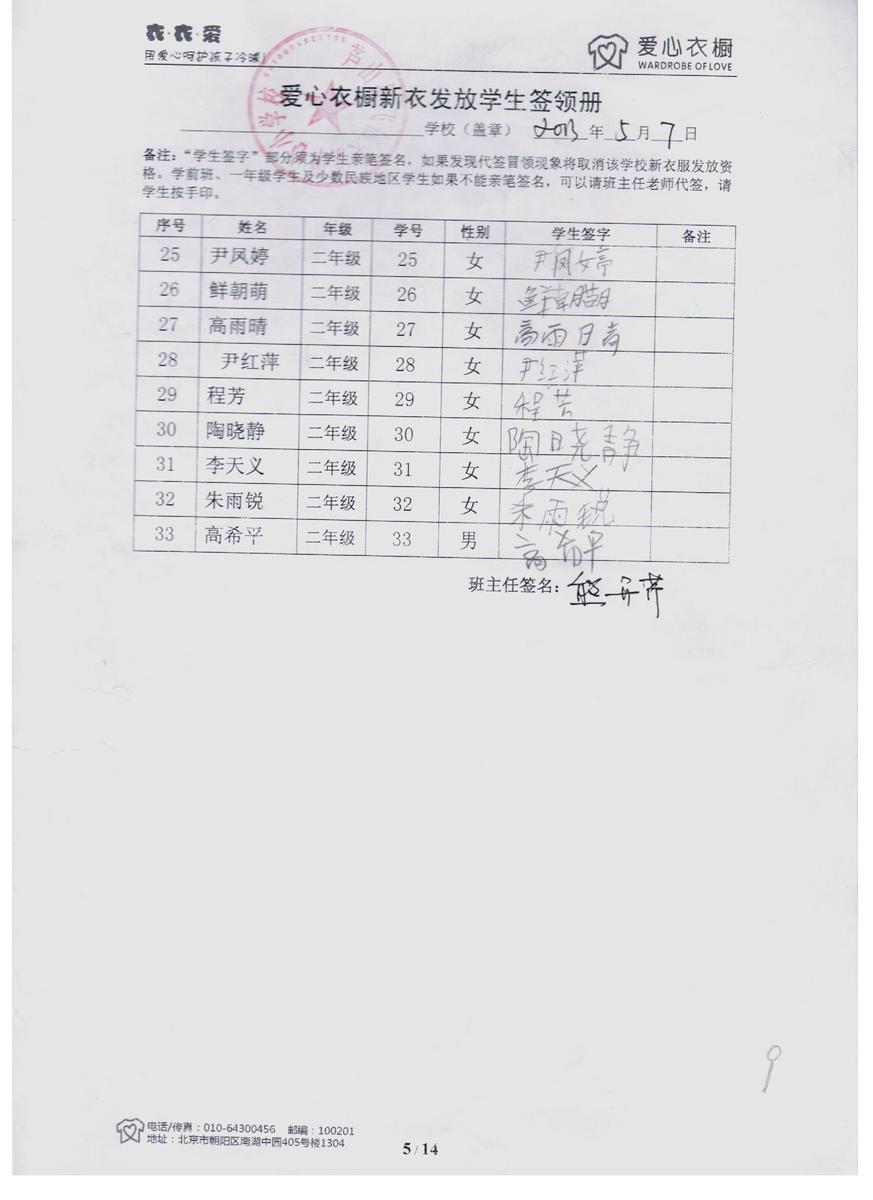 衣·衣·爱
用爱心呵护孩子冷暖!
爱心衣橱
WARDROBE OF LOVE
爱心衣橱新衣发放学生签领册
学校（盖章） 2013 年 5 月 7 日
备注：“学生签字”部分须为学生亲笔签名，如果发现代签冒领现象将取消该学校新衣服发放资
格。学前班、一年级学生及少数民族地区学生如果不能亲笔签名，可以请班主任老师代签，请
学生按手印。
序号 姓名 年级 学号 性别 学生签字 备注
25 尹凤婷 二年级 25 女 尹凤婷
26 鲜朝萌 二年级 26 女 鲜朝萌
27 高雨晴 二年级 27 女 高雨晴
28 尹红萍 二年级 28 女 尹红萍
29 程芳 二年级 29 女 程芳
30 陶晓静 二年级 30 女 陶晓静
31 李天义 二年级 31 女 李天义
32 朱雨锐 二年级 32 女 朱雨锐
33 高希平 二年级 33 男 高希平
班主任签名：
9
电话/传真：010-64300456 邮编：100201
地址：北京市朝阳区南湖中园405号楼1304
5 / 14